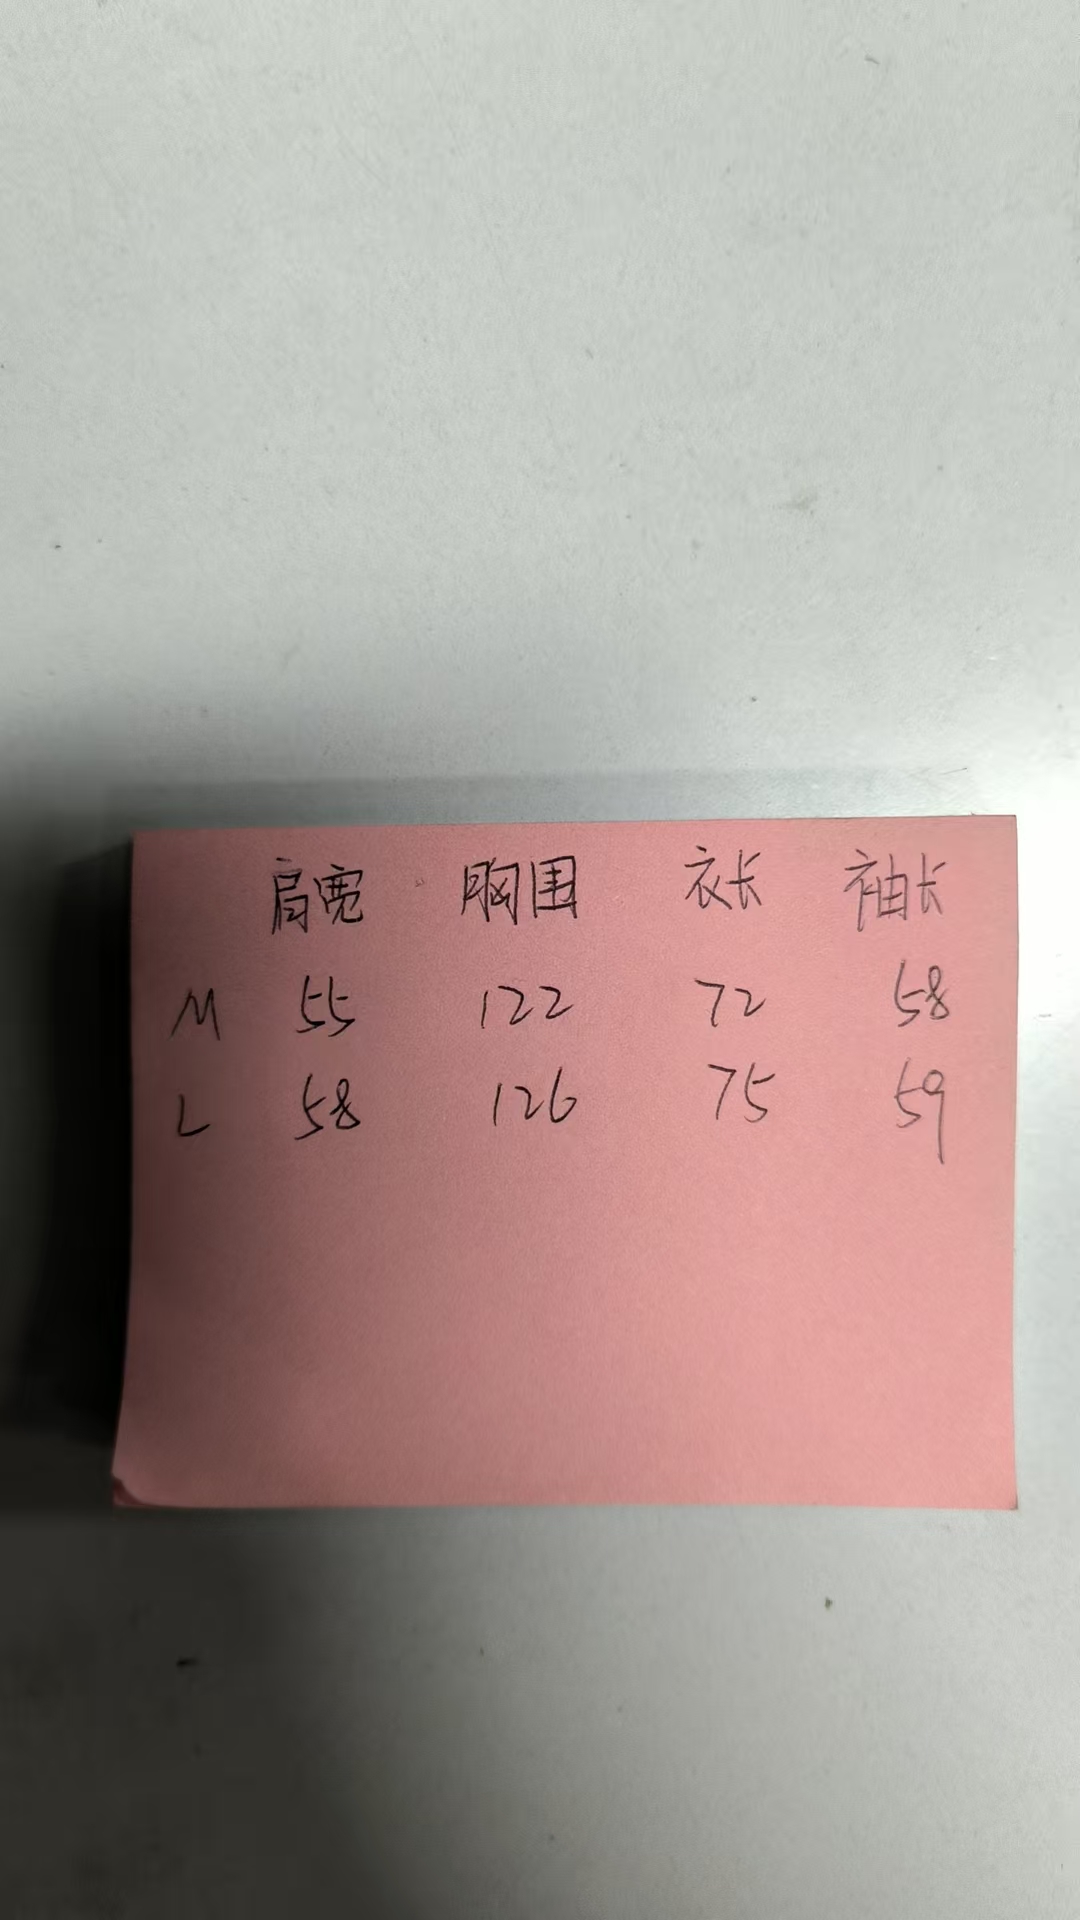 肩宽 胸围 衣长 袖长
M 55 122 72 58
L 58 126 75 59